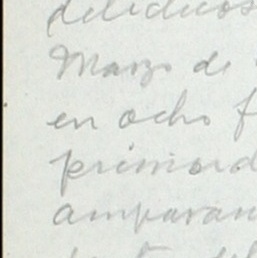 Marzo de
en ocho f
primord
amparan